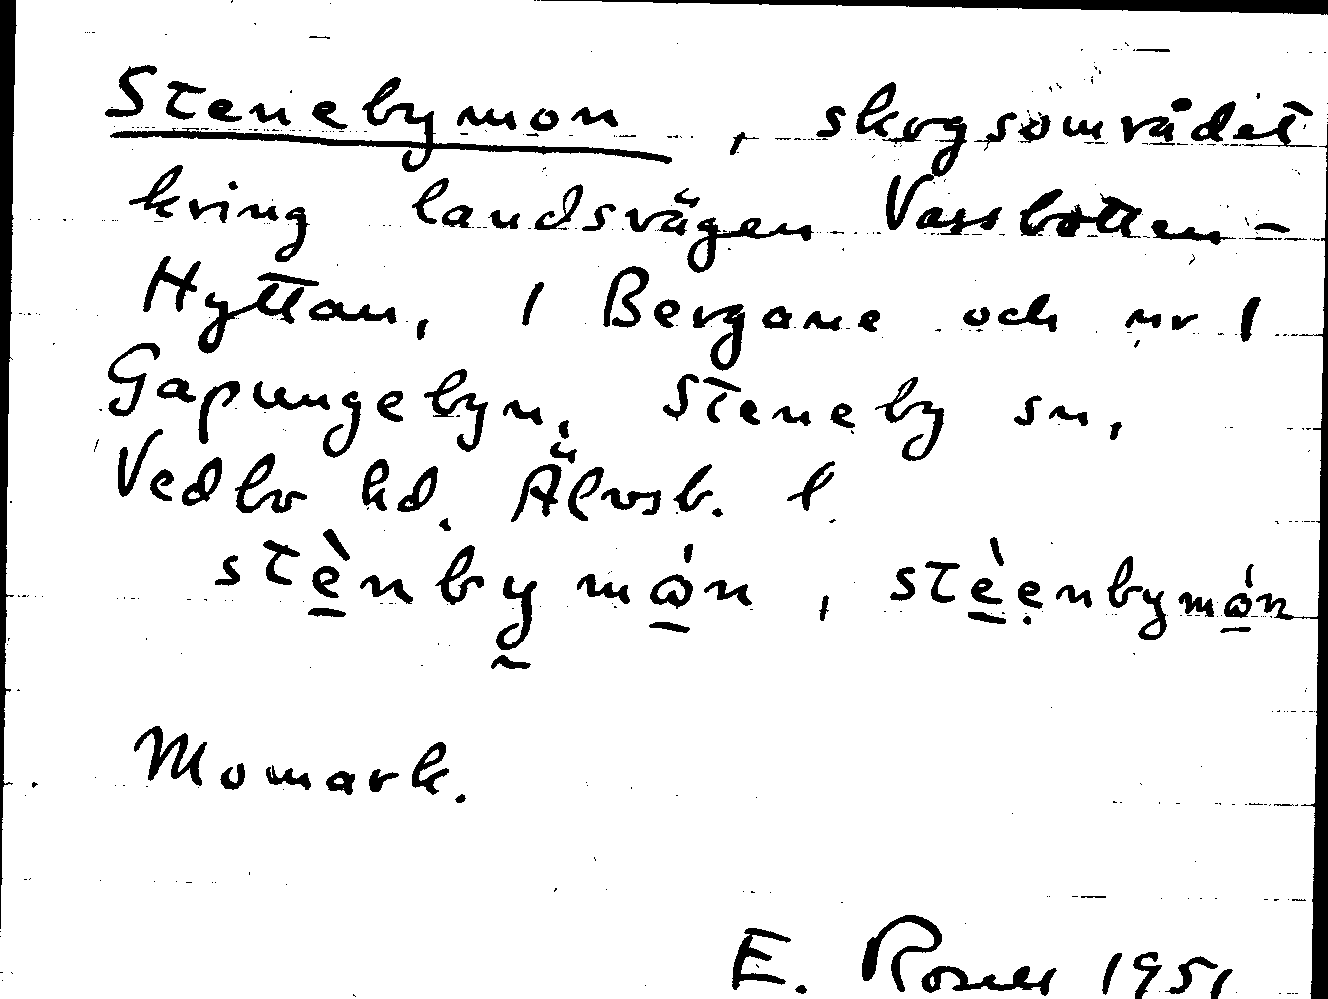 Stenebymon, skogsområdet
kring landsvägen Vassbotten-
Hyttan, 1 Bergane och nr 1
Gapungebyn, Steneby sn,
Vedbo hd. Älvsb. l.
stènbymón, stèenbymón
Momark.
E. Rosell 1951